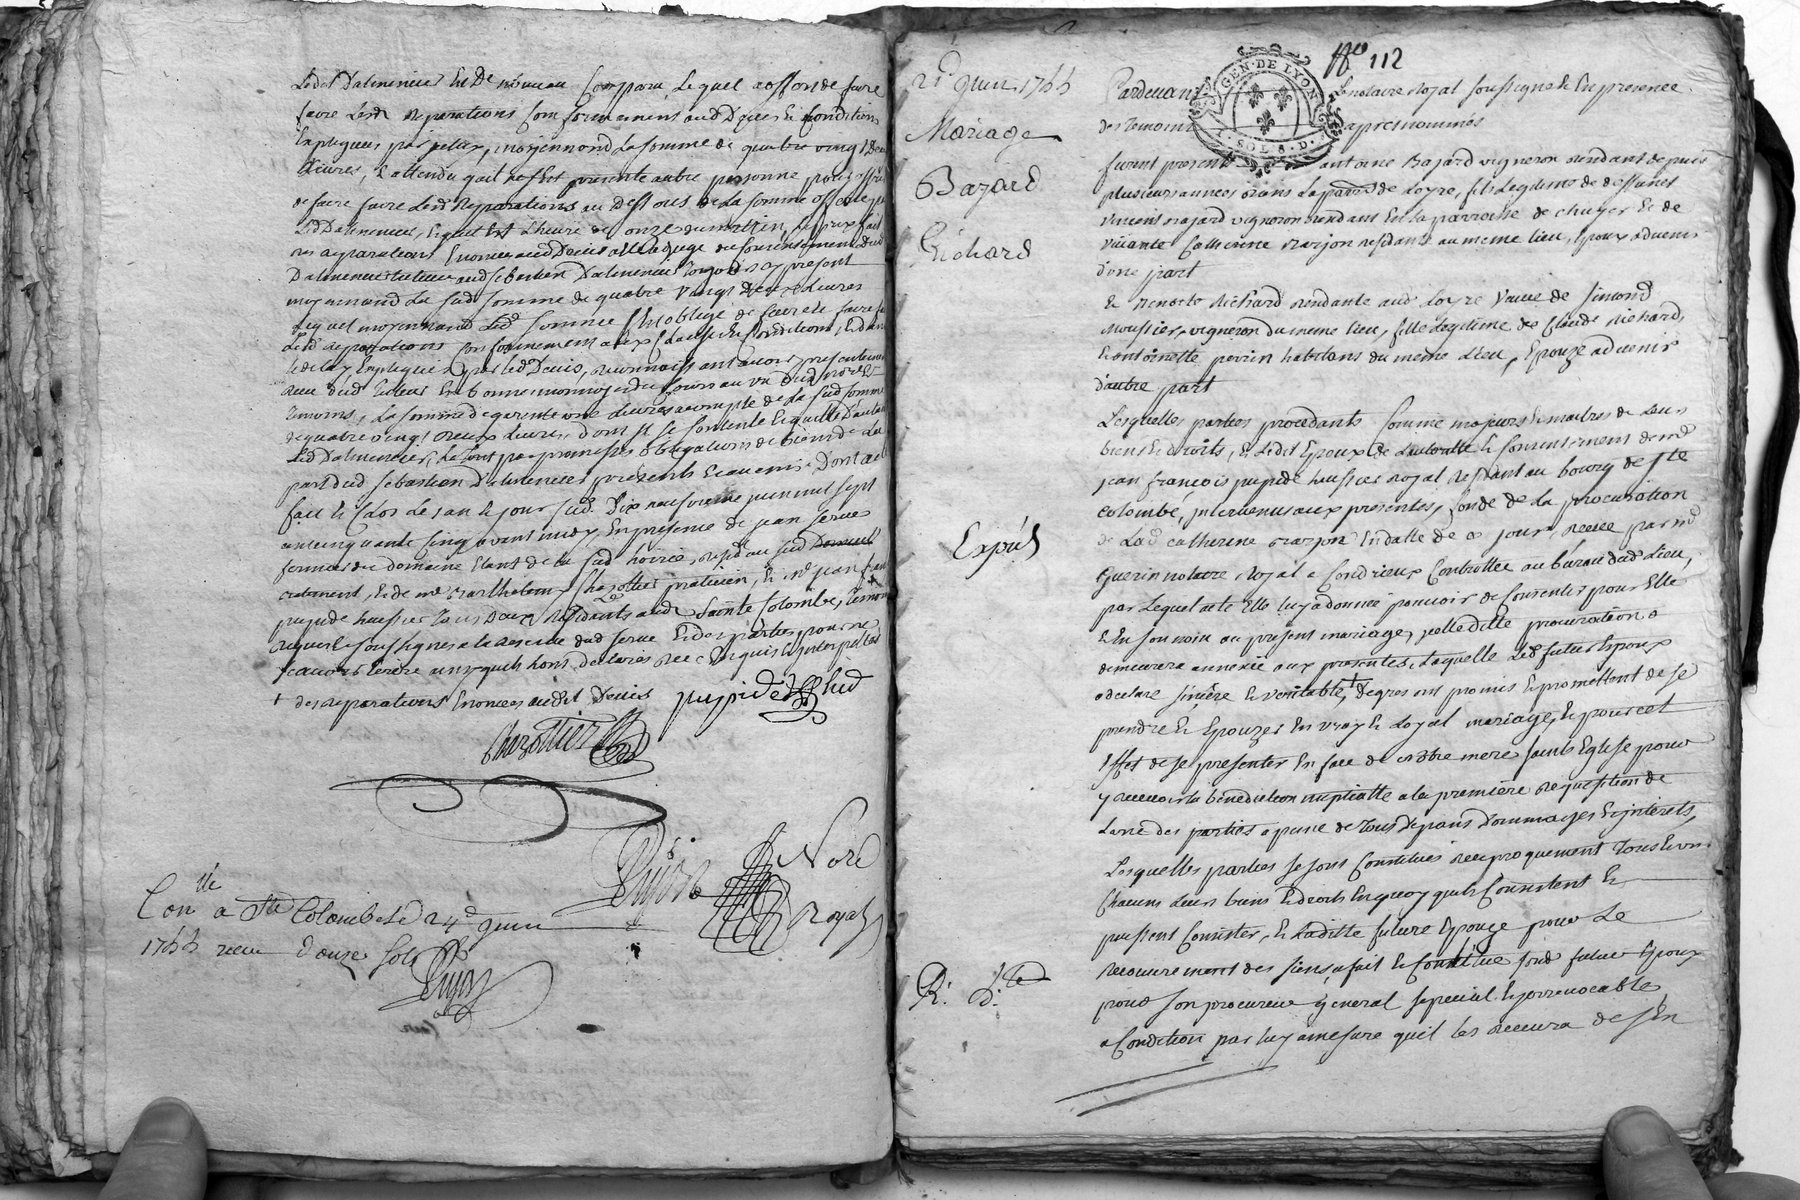 Led. Dalmencier Et De nouveau Comparu Lequel a offert de faire
faire Lesd. Reparations Conformement aud. Devis Et Conditions
Expliquées par Iceluy, moyennand La somme de quatre vingt Deux
Livres, Et attendu quil ne sest presenté autre personne pour offrir
de faire faire Lesd. Reparations au Dessous de La somme offerte par
Led. Dalmencier, Et quil Est L'heure de onze du matin, Le prix fait
des reparations Enoncées aud. Devis a Eté adjugé du Consentement dud.
Dalmencier aud. sebastien Dalmencier present
moyennand La sud. somme de quatre vingt Deux Livres
Lequel moyennand Lad. somme sest obligé de faire Et faire faire
Lesd. reparations Conformement aux Clauses Et Conditions, Et dans
le delay Expliqués par led. Devis, reconnoissant avoir presentement
Reçu dud. En bonne monnoye du Cours au vû dud. no.re Et
Temoins, La somme de quarente une Livres acompte de La sud. somme
de quatre vingt Deux Livres, Dont Il se Contente Et quitte
Led. Dalmencier, Le tout par promesses obligations de biens de La
part dud. sebastien Dalmencier present Et acceptant Dont acte
fait Et Clos Le an Et jour sud. Dix neuf juin mil sept
cent cinquante Cinq avant midy, En presence de jean serve
fermier du domaine Etant de la sud. hoirie, resid. au sud.
Et de me. barthelemy Chazottier praticien, Et me. jean fran.
pupide huissier Tous Deux Residents aud. Sainte Colombe, Temoins
requis Et soussignés a la reserve dud. serve Et des parties pour ne
scavoir Ecrire ainsy quils hont declarés de ce Enquis Et Interpellés
+ des reparations Enoncées audit Devis pupide
Chazottier
Dujon No.re
Royal
Con.lle à Ste Colombe Le 24e juin
1755 reçu Douze sols
Dujon
fo 112
GEN. DE LYON
SOLS. D.
21e juin 1755
Mariage
Bazard
Richard
Expéd.
R. d.te
Pardevant Le notaire Royal soussigné Et En presence
des Temoins apres nommés
furent presents antoine Bajard vigneron residant depuis
plusieurs années dans La paroisse de Loyre, fils Legitime de deffunt
vincent bajard vigneron residant En La parroisse de chuyer Et de
vivante Catherine marjon residante au meme lieu, Epoux advenir
d'une part
Et benoite Richard residante aud. Loyre veuve de simond
Moussier, vigneron du meme lieu, fille Legitime de Claude Richard,
Et antoinette perrin habitans du meme Lieu, Epouze advenir
d'autre part
Lesquelles parties procedants Comme majeurs Et maitres de Leurs
biens Et droits, Et Ledit Epoux de L'autorité Et Consentement de me.
jean françois pupide huissier royal residant au bourg de ste
Colombe, intervenu aux presentes, fondé de la procuration
de Lad. Catherine marjon En datte de ce jour, reçue par me.
Guerin notaire Royal a Condrieux Controllée au bureau dud. Lieu,
par Lequel acte Elle luy a donné pouvoir de Consentir pour Elle
Et En son nom au present mariage, Icelle ditte procuration
demeurera annexée aux presentes, Laquelle Led. futur Epoux
a declaré sincere Et veritable,+ degres ont promis Et promettent de se
prendre Et Epouzer En vray Et Loyal mariage, Et pour cet
Effet de se presenter En face de nôtre mere sainte Eglise pour
y recevoir La bénédiction nuptialle a la première requisition de
L'une des parties a peine de Tous depans Dommages Et interets,
Lesquelles parties se sont Constitués reciproquement Tous Et un
Chacuns Leurs biens Et droits En quoy quils Consistent Et
puissent Consister, Et Laditte future Epouze pour Le
recouvrement des siens, a fait Et Constitué sond. futur Epoux
pour son procureur general special Et irrevocable
a Condition par luy a mesure quil les recevra de s'En